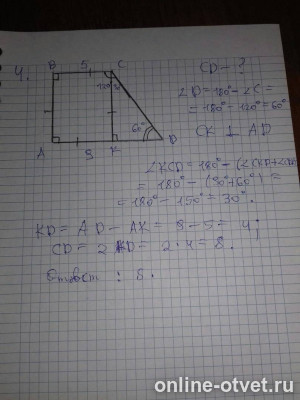 4.
B 5 C
120°
60°
A 9 K D
CD - ?
∠D = 180° - ∠C =
= 180° - 120° = 60°
CK ⊥ AD
∠KCD = 180° - (
= 180° - (90° + 60°) =
= 180° - 150° = 30°.
KD = AD - AK = 9 - 5 = 4;
CD = 2 KD = 2 · 4 = 8.
Ответ: 8.
online-otvet.ru